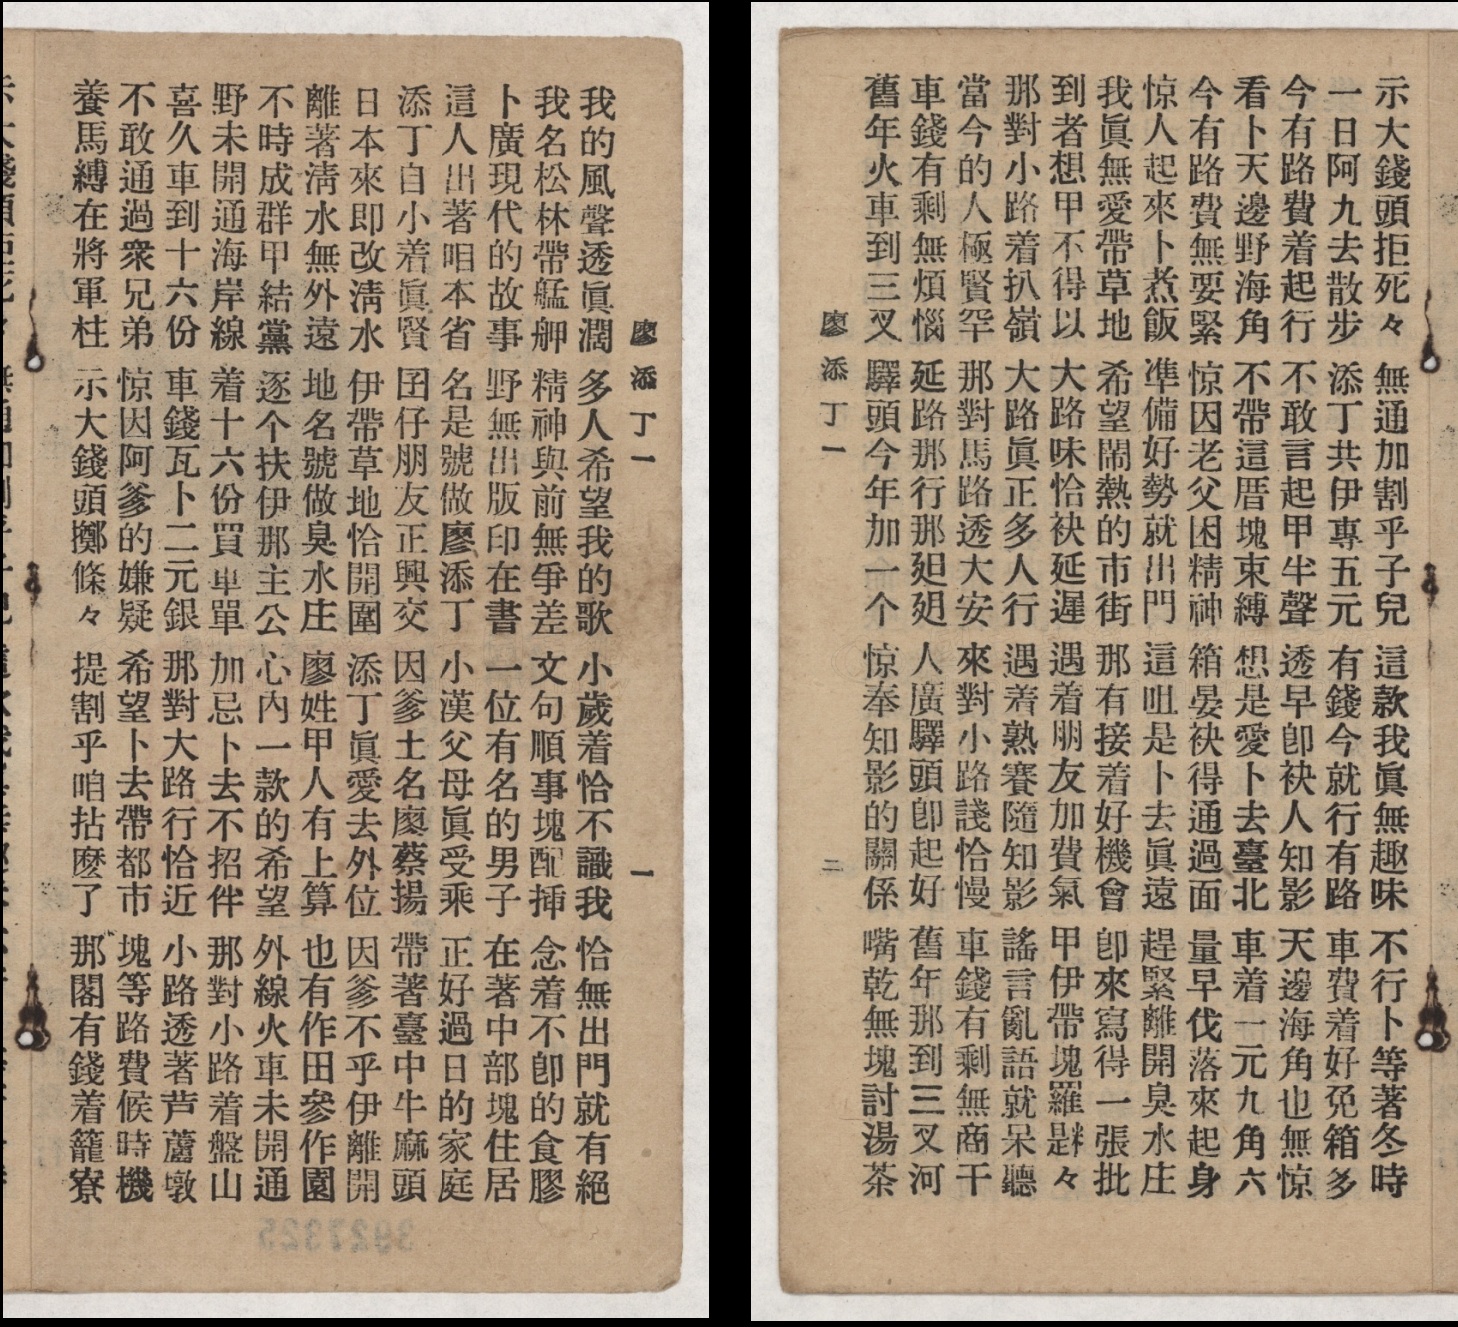 廖添丁一 一
我的風聲透眞濶 多人希望我的歌 小歲着恰不識我 恰無出門就有絕
我名松林帶艋舺 精神與前無爭差 文句順事塊配揷 念着不卽的食膠
卜廣現代的故事 野無出版印在書 一位有名的男子 在著中部塊住居
這人出著咱本省 名是號做廖添丁 小漢父母眞受乘 正好過日的家庭
添丁自小着眞賢 囝仔朋友正興交 因爹土名廖蔡揚 帶著臺中牛麻頭
日本來即改淸水 伊帶草地恰開圍 添丁眞愛去外位 因爹不乎伊離開
離著淸水無外遠 地名號做臭水庄 廖姓甲人有上算 也有作田參作園
不時成群甲結黨 逐个扶伊那主公 心內一款的希望 外線火車未開通
野未開通海岸線 着十六份買車單 加忌卜去不招伴 那對小路着盤山
喜久車到十六份 車錢瓦卜二元銀 那對大路行恰近 小路透著芦藘墩
不敢通過衆兄弟 惊因阿爹的嫌疑 希望卜去帶都市 塊等路費候時機
養馬縛在將軍柱 示大錢頭擲條々 提割乎咱拈麽了 那閣有錢着籠寮
示大錢頭拒死々 無通加割乎子兒 這款我眞無趣味 不行卜等著冬時
一日阿九去散步 添丁共伊專五元 有錢今就行有路 車費着好免箱多
今有路費着起行 不敢言起甲半聲 透早卽袂人知影 天邊海角也無惊
看卜天邊野海角 不帶這厝塊束縛 想是愛卜去臺北 車着一元九角六
今有路費無要緊 惊因老父困精神 箱晏袂得通過面 量早伐落來起身
惊人起來卜煮飯 準備好勢就出門 這咀是卜去眞遠 趕緊離開臭水庄
我眞無愛帶草地 希望鬧熱的市街 那有接着好機會 卽來寫得一張批
到者想甲不得以 大路味恰袂延遲 遇着朋友加費氣 甲伊帶塊羅𠯗々
那對小路着扒嶺 大路眞正多人行 遇着熟賽隨知影 謠言亂語就呆聽
當今的人極賢罕 那對馬路透大安 來對小路諓恰慢 車錢有剩無商干
車錢有剩無煩惱 延路那行那𨑨𨑨 人廣驛頭卽起好 舊年那到三叉河
舊年火車到三叉 驛頭今年加一个 惊奉知影的關係 嘴乾無塊討湯茶
廖添丁一 二